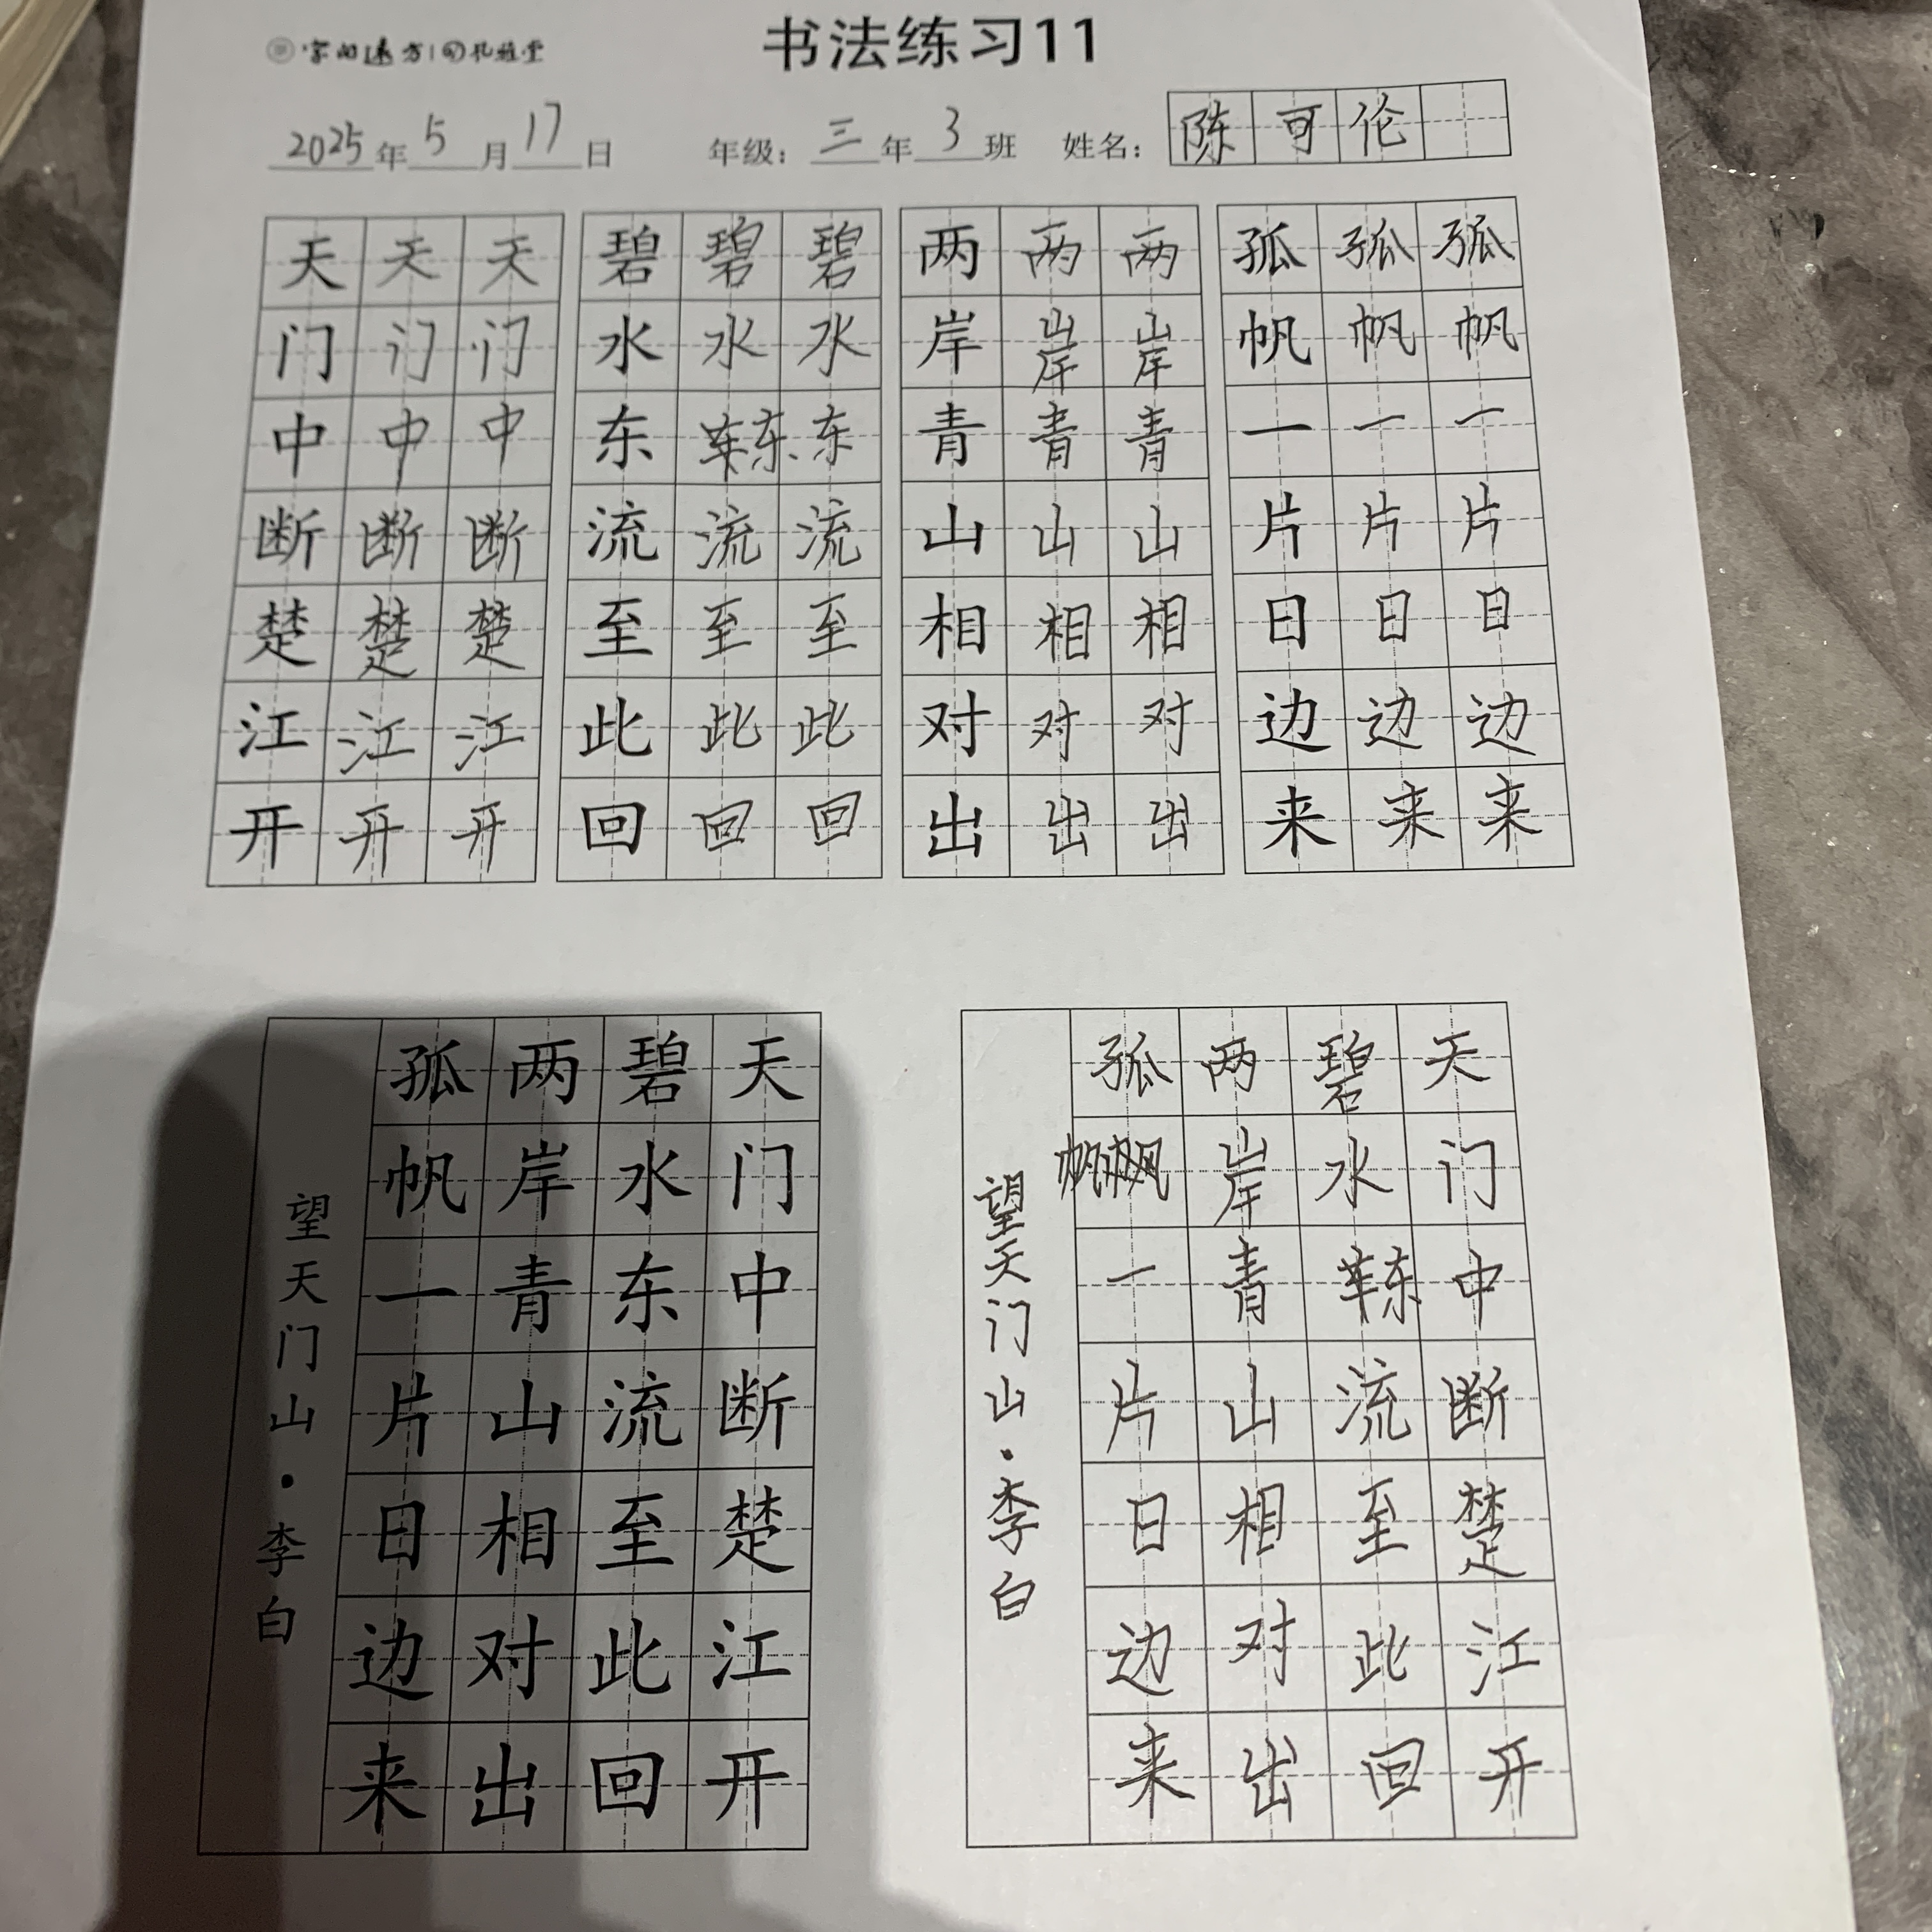 字的远方|孔雅堂
书法练习11
2025年5月17日 年级：三年3班 姓名：陈可伦
天天天 碧碧碧 两两两 孤孤孤
门门门 水水水 岸岸岸 帆帆帆
中中中 东东东 青青青 一一一
断断断 流流流 山山山 片片片
楚楚楚 至至至 相相相 日日日
江江江 此此此 对对对 边边边
开开开 回回回 出出出 来来来
天门中断楚江开
碧水东流至此回
两岸青山相对出
孤帆一片日边来
望天门山·李白
天门中断楚江开
碧水东流至此回
两岸青山相对出
孤帆一片日边来
望天门山·李白